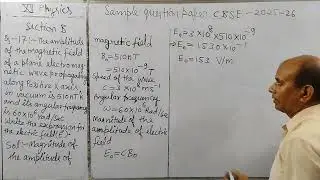 XII Physics
Sample Question Paper CBSE - 2025-26
Section B
Q-17:- The amplitude
of the magnetic field
of a plane electromag-
netic wave propagating
along Positive X axis
in vacuum is 510nT
and its angular frequency
is 60×10⁶ rad/sec
Write the expression for
the electric field (E)
Sol:- Magnitude of
the amplitude of
magnetic field
B₀=510nT
=510×10⁻⁹T
Speed of the wave
C=3×10⁸ ms⁻¹
Angular frequency
ω=60×10⁶ rad/sec
Magnitude of the
amplitude of electric
field
E₀=CB₀
E₀=3×10⁸×510×10⁻⁹
⇒E₀=1530×10⁻¹
E₀=153 V/m